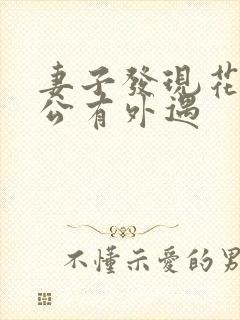 妻子發現花
公有外遇
不懂示愛的男